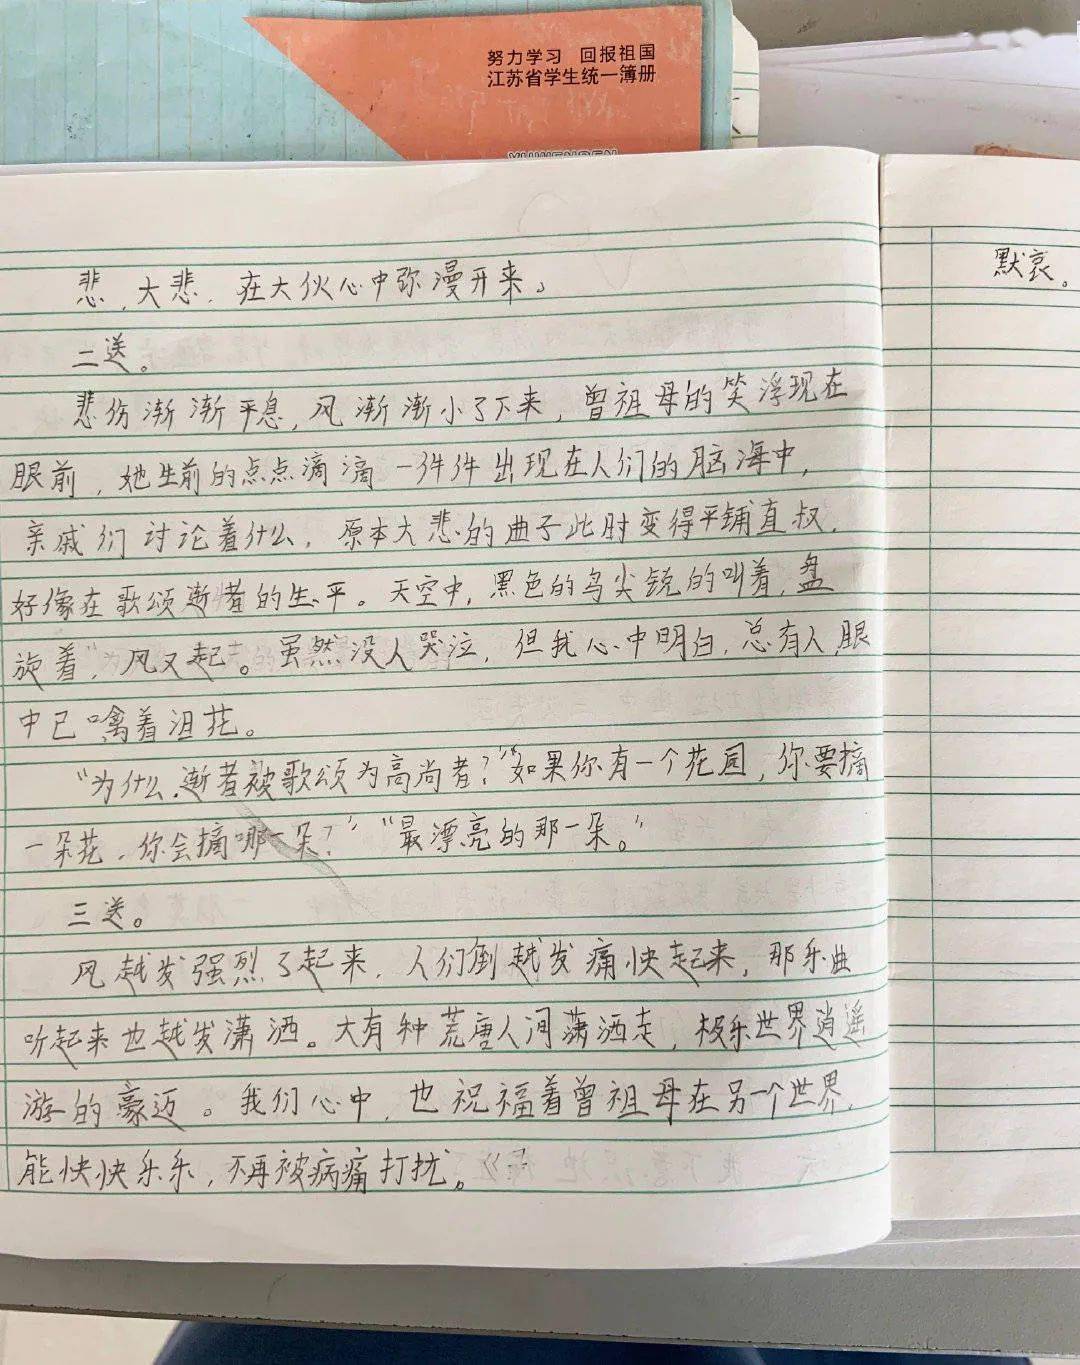 努力学习 回报祖国
江苏省学生统一簿册
悲,大悲,在大伙心中弥漫开来。
二送。
悲伤渐渐平息,风渐渐小了下来,曾祖母的笑浮现在
眼前,她生前的点点滴滴一件件出现在人们的脑海中,
亲戚们讨论着什么,原本大悲的曲子此时变得平铺直叙,
好像在歌颂逝者的生平。天空中,黑色的鸟尖锐的叫着,盘
旋着,风又起。虽然没人哭泣,但我心中明白,总有人,眼
中已噙着泪花。
“为什么逝者被歌颂为高尚者?”“如果你有一个花园,你要摘
一朵花,你会摘哪一朵?”“最漂亮的那一朵。”
三送。
风越发强烈了起来,人们倒越发痛快起来,那乐曲
听起来也越发潇洒。大有种荒唐人间潇洒走,极乐世界逍遥
游的豪迈。我们心中,也祝福着曾祖母在另一个世界,
能快快乐乐,不再被病痛打扰。
默哀。